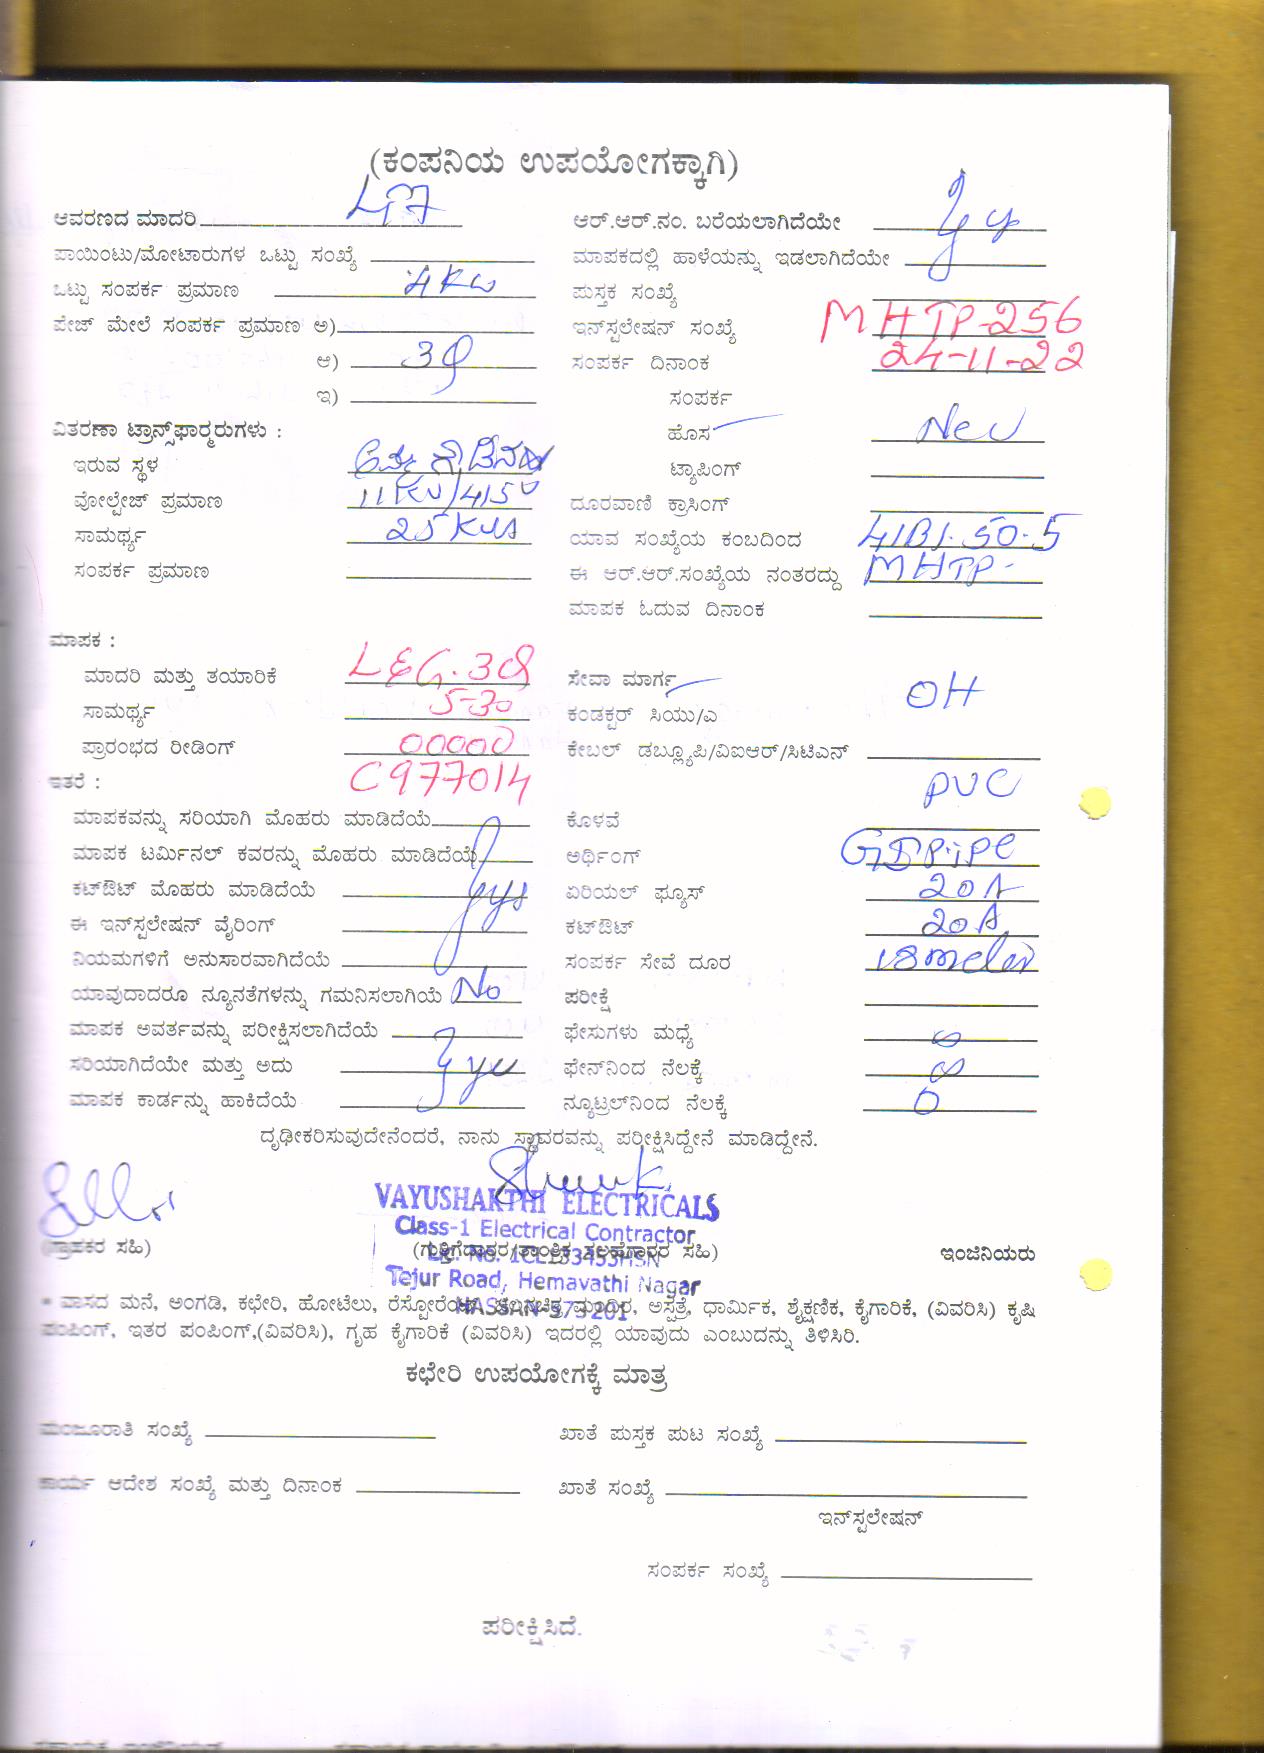 (ಕಂಪನಿಯ ಉಪಯೋಗಕ್ಕಾಗಿ)
ಆವರಣದ ಮಾದರಿ LT7 ಆರ್.ಆರ್.ನಂ. ಬರೆಯಲಾಗಿದೆಯೇ
ಪಾಯಿಂಟು/ಮೋಟಾರುಗಳ ಒಟ್ಟು ಸಂಖ್ಯೆ ಮಾಪಕದಲ್ಲಿ ಹಾಳೆಯನ್ನು ಇಡಲಾಗಿದೆಯೇ
ಒಟ್ಟು ಸಂಪರ್ಕ ಪ್ರಮಾಣ 4KW ಪುಸ್ತಕ ಸಂಖ್ಯೆ
ಪೇಜ್ ಮೇಲೆ ಸಂಪರ್ಕ ಪ್ರಮಾಣ ಅ) ಇನ್‌ಸ್ಟಲೇಷನ್ ಸಂಖ್ಯೆ MHTP-256
ಆ) 3φ ಸಂಪರ್ಕ ದಿನಾಂಕ 24-11-22
ಇ) ಸಂಪರ್ಕ
ವಿತರಣಾ ಟ್ರಾನ್ಸ್‌ಫಾರ್ಮರುಗಳು : ಹೊಸ New
ಇರುವ ಸ್ಥಳ ಟ್ಯಾಪಿಂಗ್
ವೋಲ್ಟೇಜ್ ಪ್ರಮಾಣ 11KV/415V ದೂರವಾಣಿ ಕ್ರಾಸಿಂಗ್
ಸಾಮರ್ಥ್ಯ 25KVA ಯಾವ ಸಂಖ್ಯೆಯ ಕಂಬದಿಂದ
ಸಂಪರ್ಕ ಪ್ರಮಾಣ ಈ ಆರ್.ಆರ್.ಸಂಖ್ಯೆಯ ನಂತರದ್ದು MHTP-
ಮಾಪಕ ಓದುವ ದಿನಾಂಕ
ಮಾಪಕ :
ಮಾದರಿ ಮತ್ತು ತಯಾರಿಕೆ L&G. 3φ ಸೇವಾ ಮಾರ್ಗ OH
ಸಾಮರ್ಥ್ಯ 5-30 ಕಂಡಕ್ಟರ್ ಸಿಯು/ಎ
ಪ್ರಾರಂಭದ ರೀಡಿಂಗ್ 00000 ಕೇಬಲ್ ಡಬ್ಲ್ಯೂಪಿ/ವಿಐಆರ್/ಸಿಟಿಎನ್
ಇತರೆ : C977014 PVC
ಮಾಪಕವನ್ನು ಸರಿಯಾಗಿ ಮೊಹರು ಮಾಡಿದೆಯೆ ಕೊಳವೆ
ಮಾಪಕ ಟರ್ಮಿನಲ್ ಕವರನ್ನು ಮೊಹರು ಮಾಡಿದೆಯೆ ಅರ್ಥಿಂಗ್ GI Pipe
ಕಟ್‌ಔಟ್ ಮೊಹರು ಮಾಡಿದೆಯೆ yes ಏರಿಯಲ್ ಫ್ಯೂಸ್ 20A
ಈ ಇನ್‌ಸ್ಟಲೇಷನ್ ವೈರಿಂಗ್ ಕಟ್‌ಔಟ್ 20A
ನಿಯಮಗಳಿಗೆ ಅನುಸಾರವಾಗಿದೆಯೆ ಸಂಪರ್ಕ ಸೇವೆ ದೂರ 18 meter
ಯಾವುದಾದರೂ ನ್ಯೂನತೆಗಳನ್ನು ಗಮನಿಸಲಾಗಿಯೆ No ಪರೀಕ್ಷೆ
ಮಾಪಕ ಅವರ್ತವನ್ನು ಪರೀಕ್ಷಿಸಲಾಗಿದೆಯೆ ಫೇಸುಗಳು ಮಧ್ಯೆ ∞
ಸರಿಯಾಗಿದೆಯೇ ಮತ್ತು ಅದು yes ಫೇಸ್‌ನಿಂದ ನೆಲಕ್ಕೆ ∞
ಮಾಪಕ ಕಾರ್ಡನ್ನು ಹಾಕಿದೆಯೆ ನ್ಯೂಟ್ರಲ್‌ನಿಂದ ನೆಲಕ್ಕೆ 0
ದೃಢೀಕರಿಸುವುದೇನೆಂದರೆ, ನಾನು ಸ್ಥಾವರವನ್ನು ಪರೀಕ್ಷಿಸಿದ್ದೇನೆ ಮಾಡಿದ್ದೇನೆ.
VAYUSHAKTHI ELECTRICALS
Class-1 Electrical Contractor
(ಗ್ರಾಹಕರ ಸಹಿ) (ಗುತ್ತಿಗೆದಾರರ/ತಾಂತ್ರಿಕ ಸಲಹೆಗಾರರ ಸಹಿ) ಇಂಜಿನಿಯರು
Lic. No. 1CL133453HSN
Tejur Road, Hemavathi Nagar
HASSAN-573201
* ವಾಸದ ಮನೆ, ಅಂಗಡಿ, ಕಛೇರಿ, ಹೋಟೆಲು, ರೆಸ್ಟೋರೆಂಟು, ಚಲನಚಿತ್ರ ಮಂದಿರ, ಅಸ್ಪತ್ರೆ, ಧಾರ್ಮಿಕ, ಶೈಕ್ಷಣಿಕ, ಕೈಗಾರಿಕೆ, (ವಿವರಿಸಿ) ಕೃಷಿ
ಪಂಪಿಂಗ್, ಇತರ ಪಂಪಿಂಗ್,(ವಿವರಿಸಿ), ಗೃಹ ಕೈಗಾರಿಕೆ (ವಿವರಿಸಿ) ಇದರಲ್ಲಿ ಯಾವುದು ಎಂಬುದನ್ನು ತಿಳಿಸಿರಿ.
ಕಛೇರಿ ಉಪಯೋಗಕ್ಕೆ ಮಾತ್ರ
ಮಂಜೂರಾತಿ ಸಂಖ್ಯೆ ಖಾತೆ ಪುಸ್ತಕ ಪುಟ ಸಂಖ್ಯೆ
ಕಾರ್ಯ ಆದೇಶ ಸಂಖ್ಯೆ ಮತ್ತು ದಿನಾಂಕ ಖಾತೆ ಸಂಖ್ಯೆ
ಇನ್‌ಸ್ಟಲೇಷನ್
ಸಂಪರ್ಕ ಸಂಖ್ಯೆ
ಪರೀಕ್ಷಿಸಿದೆ.